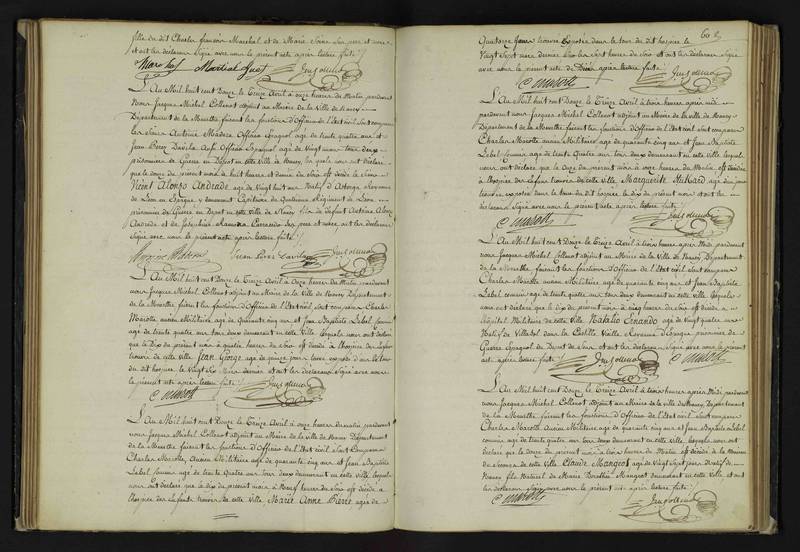 fille du dit Charles françois Marchal et de Marie
et ont les déclarans Signé avec nous le présent acte après lecture faite
L'An Mil huit cent Douze le Treize Avril à onze heures du Matin pardevant
Nous Jacques Michel Collenot adjoint au Maire de la Ville de Nancy
Département de la Meurthe faisant les fonctions d'Officier de l'Etat civil sont comparus
les Sieurs Antoine Officier Espagnol agé de trente quatre ans et
Jean Perez Officier Espagnol agé de Vingt
prisonniers de Guerre en Dépôt en cette Ville de Nancy, les quels nous ont déclaré
que le douze du présent mois à huit heures et demie du Soir est décédé le Sieur
Vicent Alonzo Andrade agé de Vingt huit ans Natif d'Astorga Royaume
de Léon en Espagne y demeurant Capitaine du Régiment de Léon
prisonnier de Guerre en Dépôt en cette Ville de Nancy fils de défunt Antoine Alonzo
Andrade et de Josephine Ramona ses père et mère et ont les déclarans
Signé avec nous le présent acte après lecture faite
L'An Mil huit cent Douze le Treize Avril à onze heures du Matin pardevant
nous Jacques Michel Collenot adjoint au Maire de la Ville de Nancy Département
de la Meurthe faisant les fonctions d'Officier de l'Etat civil sont comparus Charles
Marotte ancien Militaire agé de quarante cinq ans et Jean Baptiste Lebel commis
agé de trente quatre ans tous deux demeurant en cette Ville lesquels nous ont déclaré
que le Dix du présent mois à quatre heures du Soir est décédé à l'hospice des Enfans
trouvés de cette Ville Jean George agé de quinze jours trouvé exposé dans le tour
du dit hospice le Vingt Mars dernier et ont les déclarans Signé avec nous
le présent acte après lecture faite
C Marotte
L'An Mil huit cent Douze le Treize Avril à onze heures du matin, pardevant
nous Jacques Michel Collenot adjoint au Maire de la Ville de Nancy Département
de la Meurthe faisant les fonctions d'Officier de l'Etat civil sont Comparus
Charles Marotte, Ancien Militaire agé de quarante cinq ans et Jean Baptiste
Lebel commis agé de trente quatre ans tous deux demeurant en cette Ville, lesquels
nous ont déclaré que le dix du présent mois à Neuf heures du Soir est décédée à
l'hospice des Enfans trouvés de cette Ville Marie Anne Pierre agée de
Quinze Jours trouvée Exposée dans le tour du dit hospice le
Vingt Sept mars dernier à Sept heures du Soir et ont les déclarans Signé
avec nous le présent acte de Décès après lecture faite
C Marotte
L'An Mil huit cent Douze le Treize Avril à trois heures après midi
pardevant nous Jacques Michel Collenot adjoint au Maire de la ville de Nancy
Département de la Meurthe faisant les fonctions d'Officier de l'Etat civil sont comparus
Charles Marotte ancien Militaire agé de quarante cinq ans et Jean Baptiste
Lebel commis agé de trente quatre ans tous deux demeurant en cette Ville lesquels
nous ont déclaré que le onze du présent mois à onze heures du Matin est décédée
à l'hospice des Enfans trouvés de cette Ville Marguerite agée d'un jour
trouvée exposée dans le tour du dit hospice le dix du présent mois et ont les
déclarans Signé avec nous le présent acte après lecture faite
C Marotte
L'An Mil huit cent Douze le Treize Avril à trois heures après Midi, pardevant
nous Jacques Michel Collenot adjoint au Maire de la Ville de Nancy Département
de la Meurthe faisant les fonctions d'Officier de l'Etat civil sont comparus
Charles Marotte ancien Militaire agé de quarante cinq ans et Jean Baptiste
Lebel commis agé de trente quatre ans tous deux demeurant en cette Ville lesquels
nous ont déclaré que le du présent mois à cinq heures du Soir est décédé à
l'hôpital Militaire de cette Ville Natalio Ernando agé de vingt quatre ans
Natif de dans la Castille Vieille Royaume d'Espagne prisonnier de
Guerre Espagnol du Dépôt de et ont les déclarans Signé avec nous le présent
acte après lecture faite
C Marotte
L'An Mil huit cent Douze le Treize Avril à trois heures après Midi, pardevant
nous Jacques Michel Collenot adjoint au Maire de la Ville de Nancy, Département
de la Meurthe faisant les fonctions d'Officier de l'Etat civil sont comparus
Charles Marotte Ancien Militaire agé de quarante cinq ans et Jean Baptiste Lebel
commis agé de trente quatre ans tous deux demeurant en cette Ville, lesquels nous ont
déclaré que le douze du présent mois à trois heures du Matin est décédé à la Maison
de Secours de cette Ville Claude Mangeot agé de Vingt Sept jours Natif de
Nancy fils Naturel de Marie Mangeot demeurant en cette Ville, et ont
les déclarans Signé avec nous le présent acte après lecture faite
C Marotte